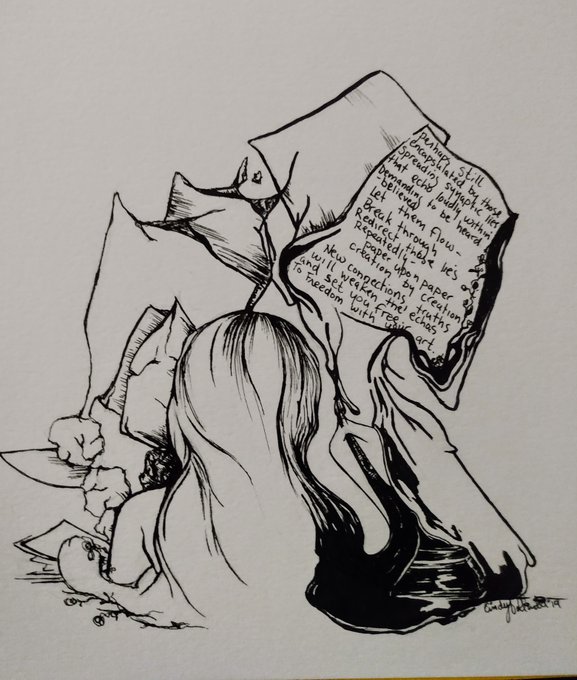 perhaps still
encapsulated by those
spreading synaptic lies
that echo loudly within
Demanding to be heard
-believed-
Let them flow-
Break through-
Redirect those lies
Repeatedly-
paper upon paper
creation by creation
New connections, truths
will weaken the echos
and set you free-
To Freedom with your art
Cindy '19